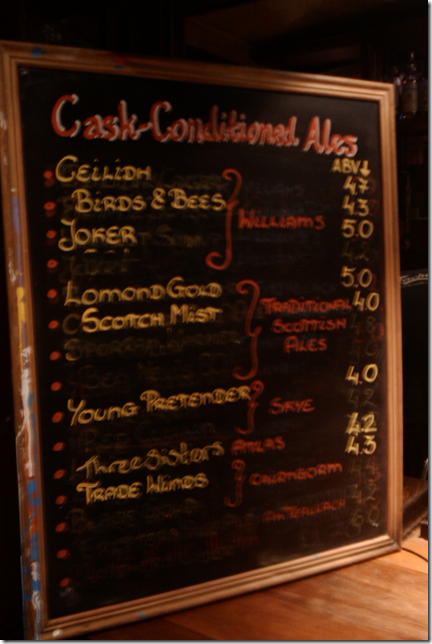 Cask-Conditioned Ales
ABV↓
CEILIDH 4.7
BIRDS & BEES 4.3
JOKER WILLIAMS 5.0
5.0
LOMOND GOLD TRADITIONAL 4.0
SCOTCH MIST SCOTTISH
ALES
4.0
YOUNG PRETENDER SKYE
4.2
Three Sisters ATLAS 4.3
TRADE WINDS CAIRNGORM